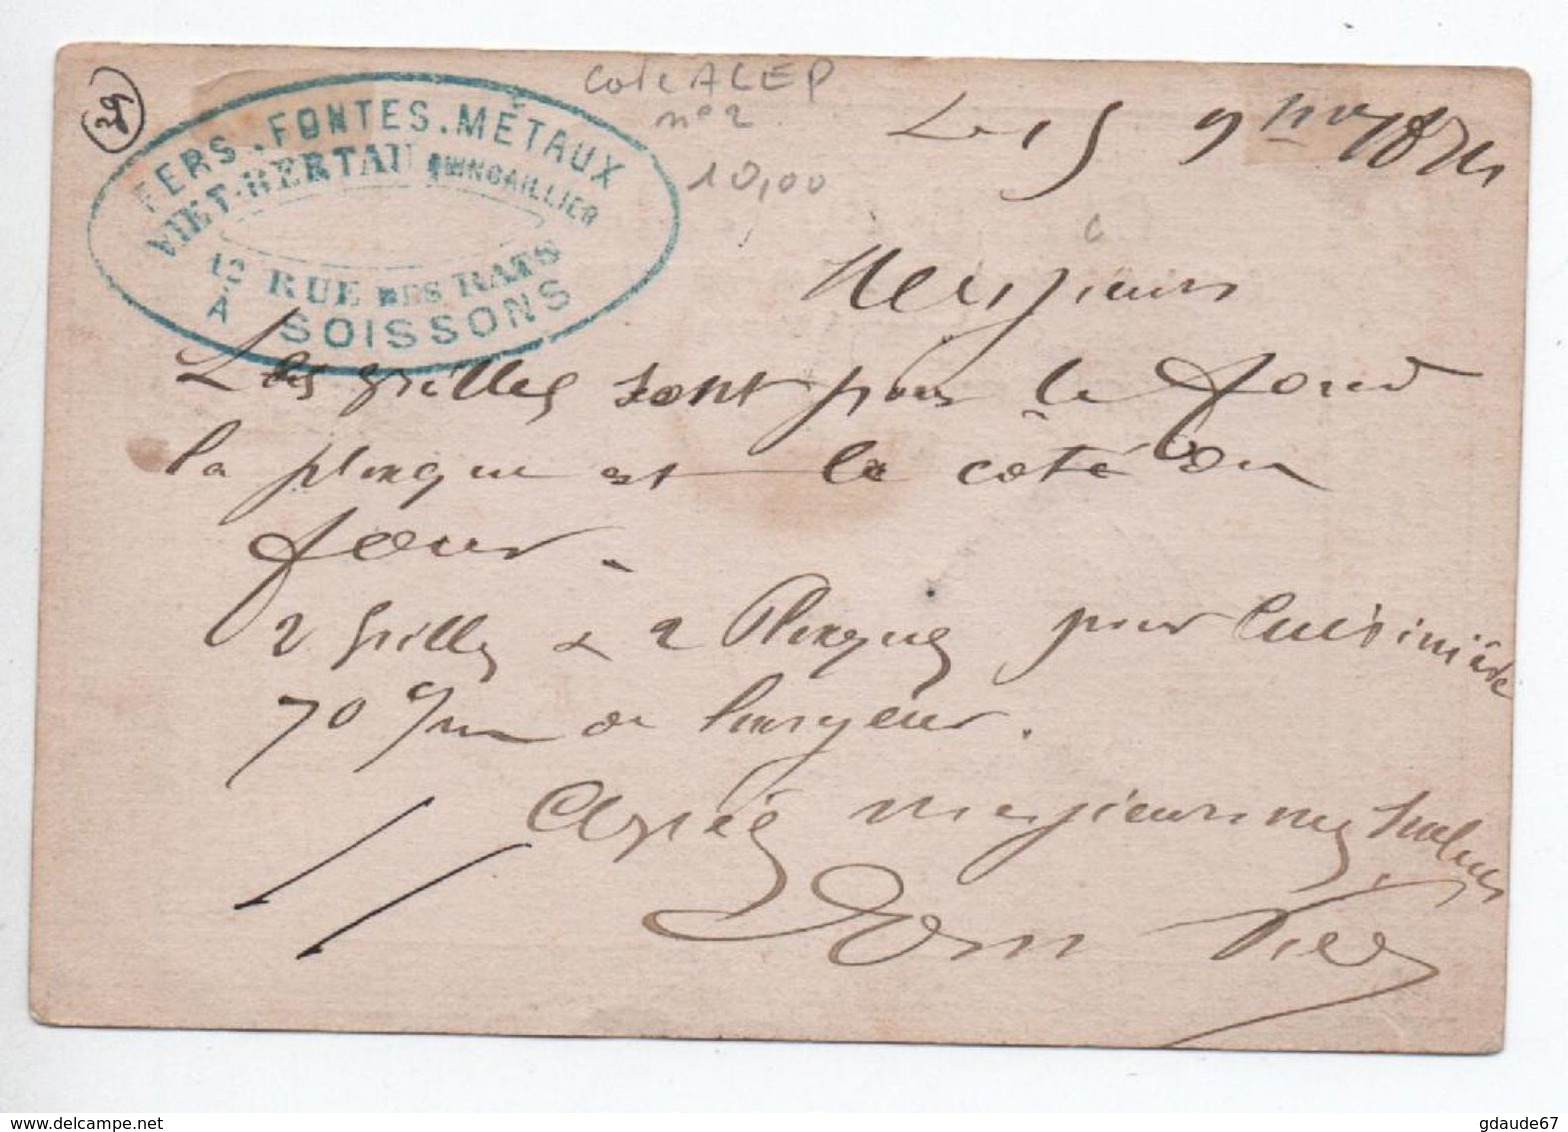 29
cote ACEP
n° 2
10,00
FERS. FONTES. MÉTAUX
VIET-BERTAU QUINCAILLIER
12 RUE DES RATS
À SOISSONS
Le 15 9bre 1874
Messieurs
Les grilles sont pour le fond
la plaque est le coté du
four.
2 Grilles & 2 Plaques pour Cuisinière
70 c/m de longueur.
Agréez messieurs mes salues
Viet
gdaude67